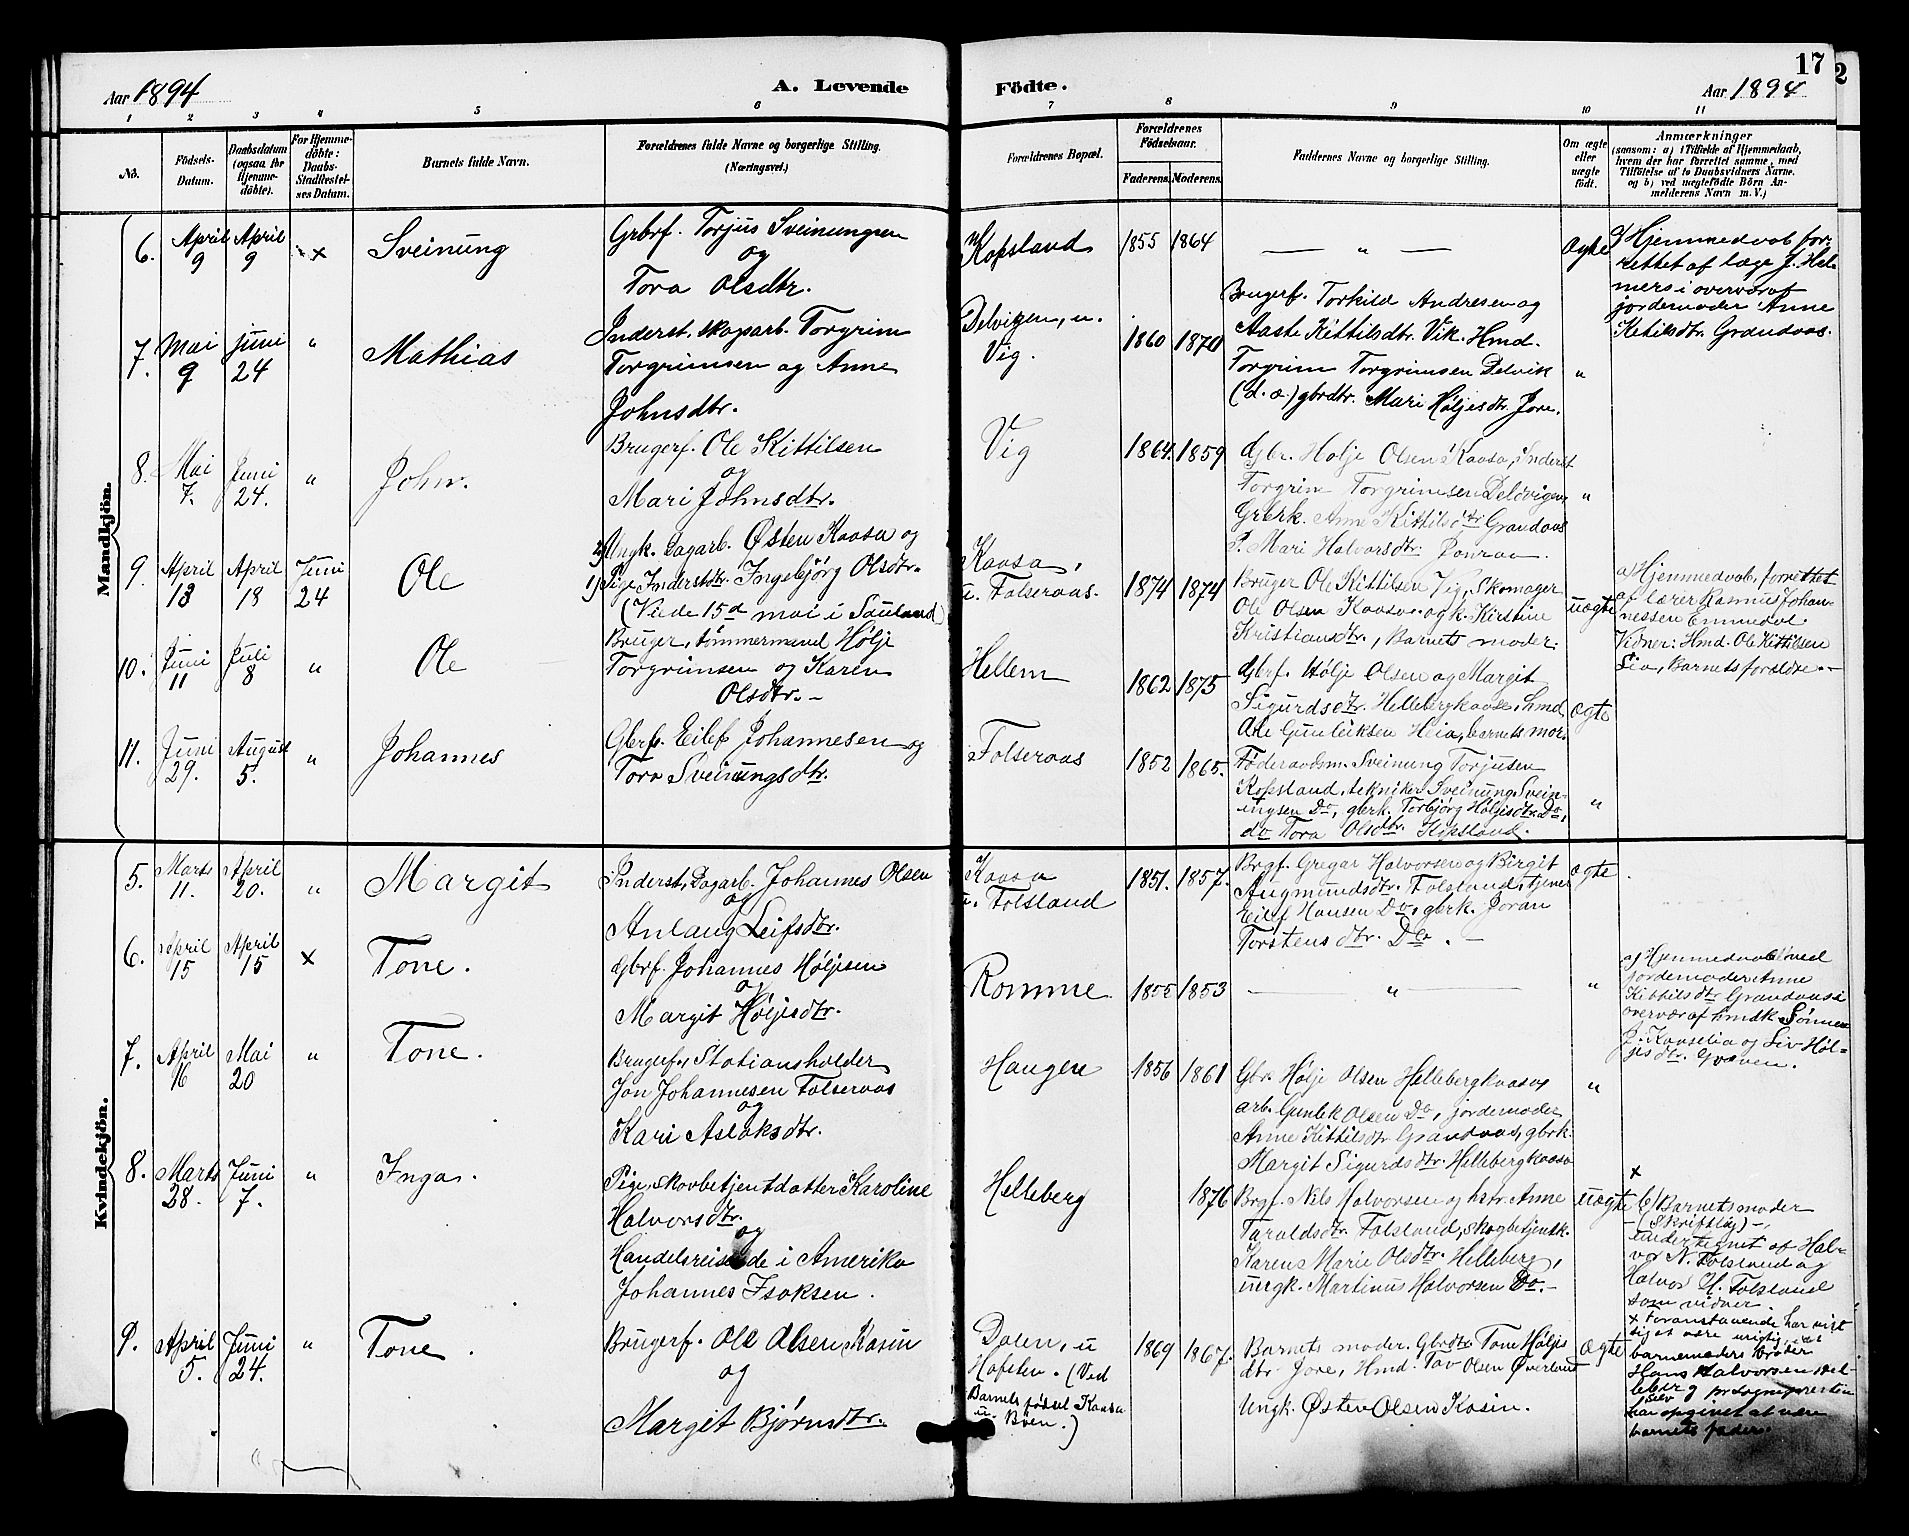 Aar 1894
A. Levende
Födte.
Aar 1894
17
2
1 2 3 4 5 6 7 8 9 10 11
No.
Födsels-
Datum.
Daabsdatum
(ogsaa for
Hjemme-
döbte).
For Hjemme-
döbte:
Daabs-
Stadfestel-
ses Datum.
Barnets fulde Navn.
Forældrenes fulde Navne og borgerlige Stilling.
(Næringsvei.)
Forældrenes Bopæl.
Forældrenes
Födselsaar.
Faderens.
Moderens.
Faddernes Navne og borgerlige Stilling.
Om ægte
eller
uægte
födt.
Anmærkninger
(saasom: a) i Tilfælde af Hjemmedaab,
hvem der har forrettet samme, med
Tilföielse af to Daabsvidners Navne.
og b) ved uægtefödte Börn An-
melderens Navn m. V.)
Mandkjön.
6.
April
9
April
9
×
Sveinung
Grbrf. Torjus Sveinungsen
og
Tora Olsdtr.
Kopsland
1855
1864
— " —
Ægte
a/ Hjemmedaab for-
rettet af læge J. Hel-
mers i overvær af
jordemoder Anne
Ketilsdtr. Grandaas.
7.
Mai
9
Juni
24
"
Mathias
Inderst. skogarb. Torgrim
Torgrimsen og Anne
Johnsdtr.
Delvigen, u.
Vig.
1860
1870
Brugerf. Torkild Andresen og
Aaste Kittilsdtr. Vik. Hmd.
Torgrim Torgrimsen Delvik
(d. æ.) gbrdtr. Mari Høljesdtr. Jore.
"
8.
Mai
7.
Juni
24.
"
John.
Brugerf. Ole Kittilsen
og
Mari Johnsdtr.
Vig
1864.
1859
Gbr. Holje Olsen Kaasa, Inderst
Torgrim Torgrimsen Deldvigen
Grerk. Anne Kittilsdtr Grandaas
P. Mari Halvorsdtr
"
9.
April
13
April
18
Juni
24
Ole
2) Ungk. Dagarb. Østen Kaasa og
1) Pige, Inderstdtr. Ingebjørg Olsdtr.
(Viede 15d mai i Sauland)
Kaasa,
u. Folseraas.
1874
1874
Bruger Ole Kittilsen Vig, Skomager
Ole Olsen Kaasa og k. Kirstine
Kristiansdtr., Barnets moder.
uægte
a/ Hjemmedaab, forrettet
af lærer Rasmus Johan-
nessen
Vidner: Hmd. Ole Kittilsen
Lia, Barnets forældre.—
10.
Juni
11
Juli
8
"
Ole
Bruger, tømmermand Hölje
Torgrimsen og Karen
Olsdtr.—
Hellem
1862
1875
Gbrf. Holje Olsen og Margit
Sigurdsdtr. Hellebergkaasa, hmd
Ole Gunleiksen Heia, barnets mor.
ægte
11.
Juni
29.
August
5.
"
Johannes
Gbrf. Eilef Johannesen og
Tora Sveinungsdtr.
Folseraas
1852
1865.
Føderaadsm. Sveinung Torjusen
Kopsland, tekniker Sveinung Svein-
ungsen Do, gbrk. Torbjørg Høljesdtr. Do,
do Tora Olsdtr. Kopsland.
"
Kvindekjön.
5.
Marts
11.
April
20.
"
Margit
Inderst, Dagarb. Johannes Olsen
og
Anlaug Leifsdtr.
Kaasa
u. Folsland
1851.
1857.
Brgf. Gregar Halvorsen og Birgit
Augmundsdtr. Folsland, tjener
Eilef Hansen Do, gbrk. Joran
Torstensdtr. Do. —
ægte
6.
April
15
April
15
×
Tone.
Gbrf. Johannes Høljesen
og
Margit Høljesdtr.
Romme
1855
1853
— " —
"
a/ Hjemmedøbt ved
jordemoder Anne
Kittilsdtr. Grandaas i
overvær af hmdk. Sønnev
J. Kaaselia og Liv Høl-
jesdtr. Graven.
7.
April
16
Mai
20
"
Tone.
Brugerf., Stationsholder
Jon Johannesen Folseraas
og
Kari Aslaksdtr.
Haugen
1856
1861
Gbr. Hölje Olsen Hellebergkaasa
arb. Gunlek Olsen Do, jordemoder
Anne Kittilsdtr Grandaas, gbrk.
Margit Sigurdsdtr. Hellebergkaasa
"
8.
Marts
28.
Juni
7.
"
Inga.
Pige, skovbetjentdatter Karoline
Halvorsdtr.
og
Handelsreisende i Amerika
Johannes Isaksen.
Helleberg
1876
Brgf. Nels Halvorsen og hstr. Anne
Taraldsdtr. Folsland, skogbetjentk.
Karen Marie Olsdtr. Helleberg,
ungk. Martinus Halvorsen Do.—
uægte
×
b/ Barnets moder
— (Skriftlig) —,
undertegnet af Hal-
vor N. Folsland og
Halvor H. Folsland
som vidner.
× Foranstaaende har vist
sig at være urigtig, idet
barnemoders broder
Hans Halvorsen Hel-
leberg selv pr sogneprest
har opgivet at være
barnets fader.
9.
April
5.
Juni
24.
"
Tone
Brugerf. Ole Olsen Kasin
og
Margit Bjørnsdtr.
Dalen, u
Hafsten. (Ved
Barnets fødsel Kaasa
u. Bøen.)
1869
1867.
Barnets moder. Gbrdtr. Tone Høljes
dtr Jore, Hmd. Tov Olsen Øverland
Ungk. Østen Olsen Kasin.
ægte